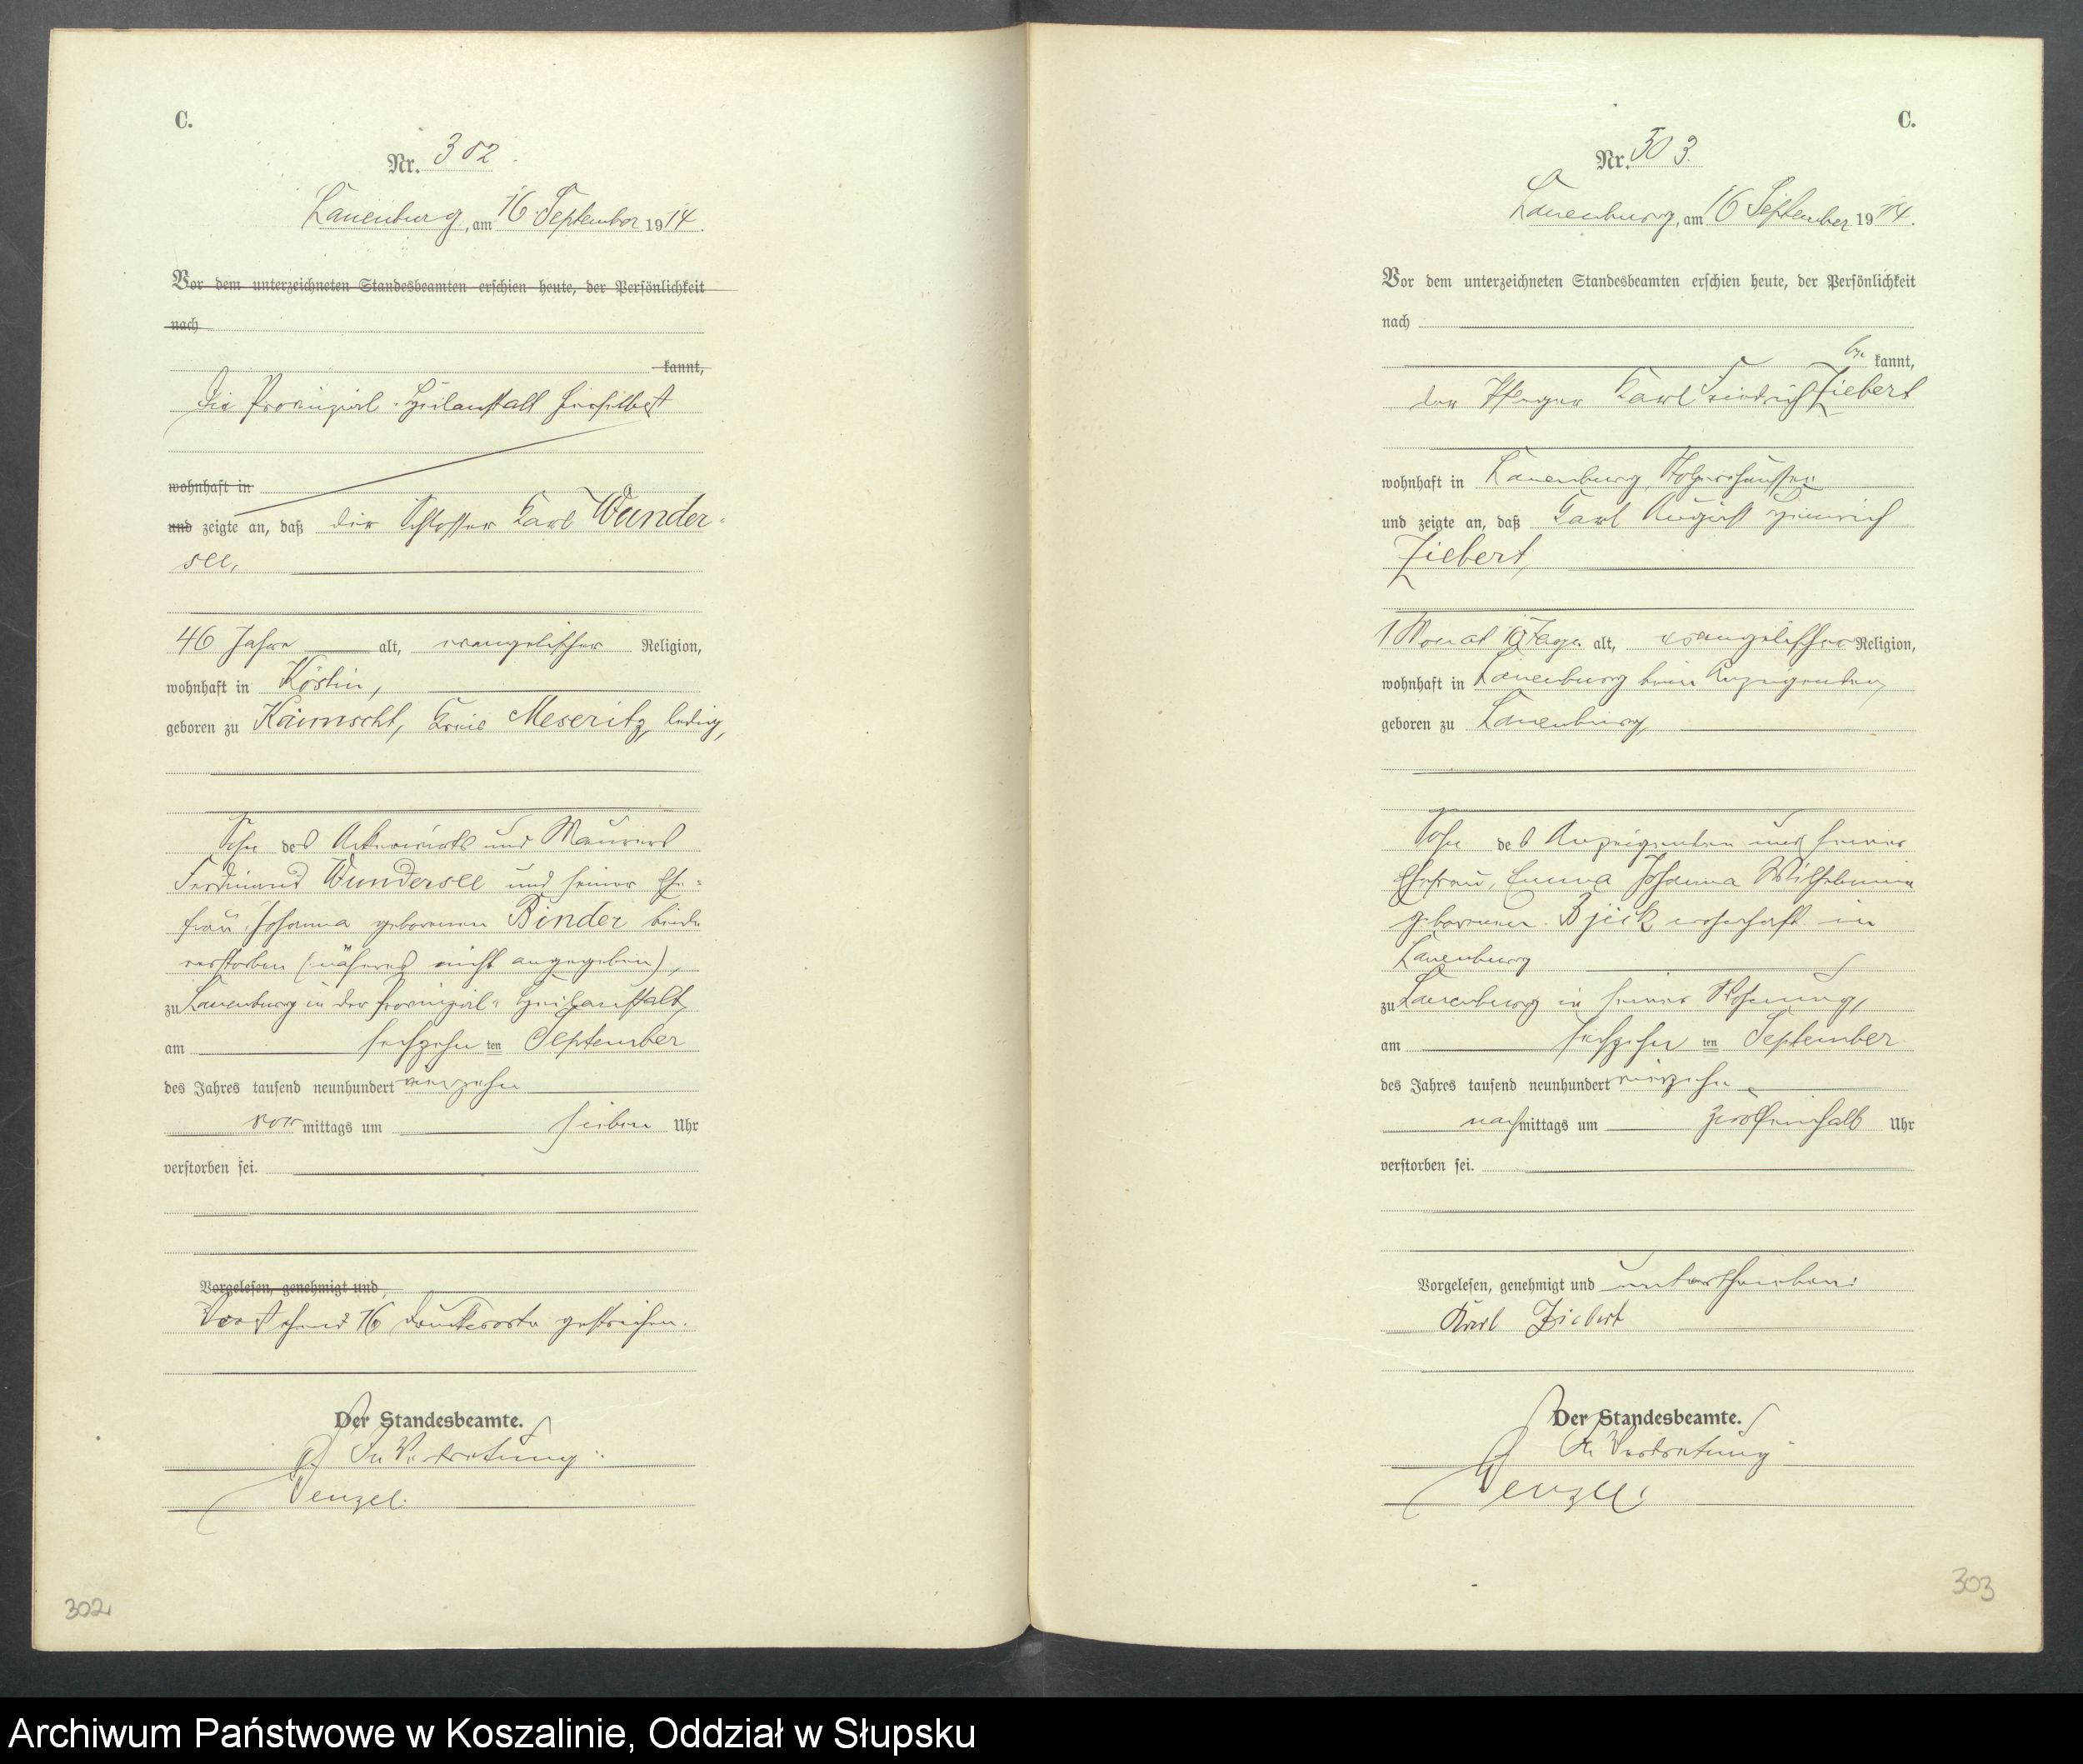 C.
Nr. 302.
Lauenburg, am 16. September 1914.
Vor dem unterzeichneten Standesbeamten erschien heute, der Persönlichkeit
nach
kannt,
Die Provinzial-Heilanstalt hierselbst
wohnhaft in
und zeigte an, daß der Schlosser Karl Wunder-
see,
46 Jahre alt, evangelischer Religion,
wohnhaft in Köslin,
geboren zu Kreis Meseritz, ledig,
Sohn des Ackerwirts und Maurers
Ferdinand Wundersee und seiner Ehe-
frau Johanna geborenen Binder beide
verstorben (näheres nicht angegeben),
zu Lauenburg in der Provinzial-Heilanstalt,
am sechzehn ten September
des Jahres tausend neunhundert vierzehn
vormittags um sieben Uhr
verstorben sei.
Vorgelesen, genehmigt und
Vorstehend 16 Druckworte gestrichen.
Der Standesbeamte.
In Vertretung:
Wenzel.
302
C.
Nr. 303.
Lauenburg, am 16 September 1914.
Vor dem unterzeichneten Standesbeamten erschien heute, der Persönlichkeit
nach
be kannt,
der Pfleger Karl Friedrich Ziebert
wohnhaft in Lauenburg,
und zeigte an, daß Karl August Heinrich
Ziebert,
1 Monat Tage alt, evangelischer Religion,
wohnhaft in Lauenburg beim Anzeigenden,
geboren zu Lauenburg,
Sohn des Anzeigenden und seiner
Ehefrau, Emma Johanna Wilhelmine
geborenen wohnhaft in
Lauenburg
zu Lauenburg in seiner Wohnung,
am sechzehn ten September
des Jahres tausend neunhundert vierzehn
nachmittags um zwölfeinhalb Uhr
verstorben sei.
Vorgelesen, genehmigt und unterschrieben:
Karl Ziebert
Der Standesbeamte.
In Vertretung:
Wenzel.
303
Archiwum Państwowe w Koszalinie, Oddział w Słupsku